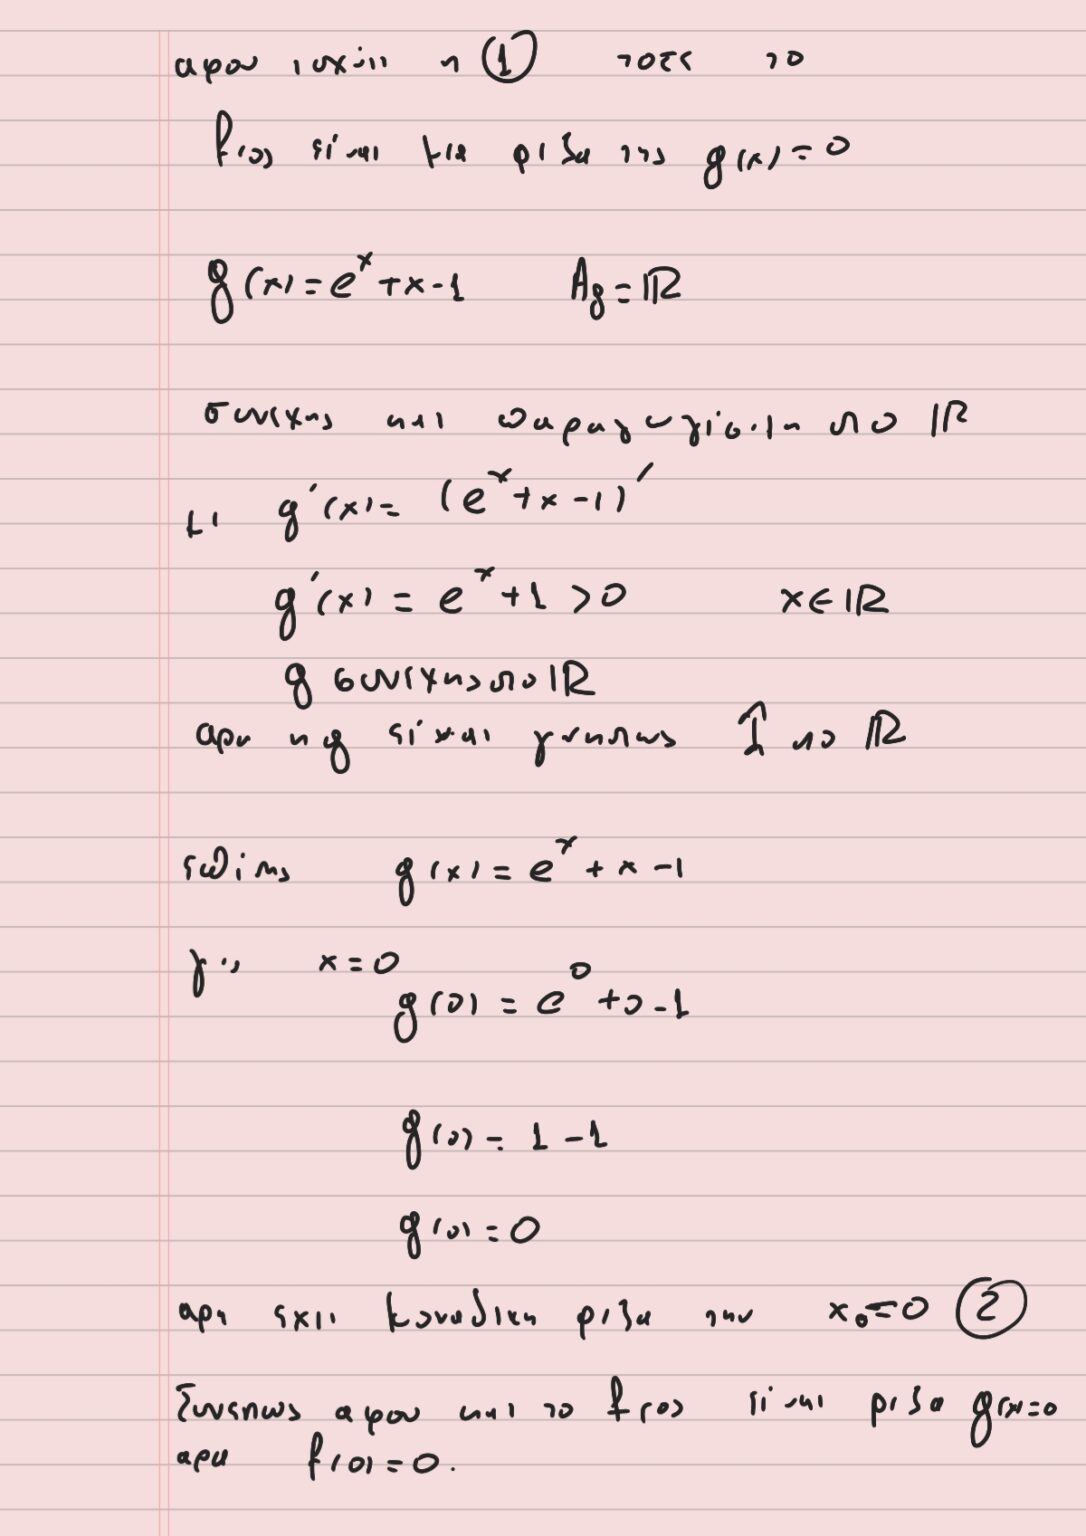 αφου ισχύει η ① τοτε το
f(0) είναι μια ριζα της g(x)=0
g(x)=e^x+x-1 A_g=ℝ
συνεχης και παραγωγίσιμη στο ℝ
με g'(x)= (e^x+x-1)'
g'(x) = e^x+1 >0 x∈ℝ
g συνεχης στο ℝ
αρα η g είναι γνησιως ↑ στο ℝ
επίσης g(x) = e^x + x -1
για x=0
g(0) = e^0 +0-1
g(0) = 1 -1
g(0) = 0
αρα εχει μοναδικη ριζα την x_0=0 ②
Συνεπως αφου και το f(0) είναι ριζα g(x)=0
αρα f(0)=0.